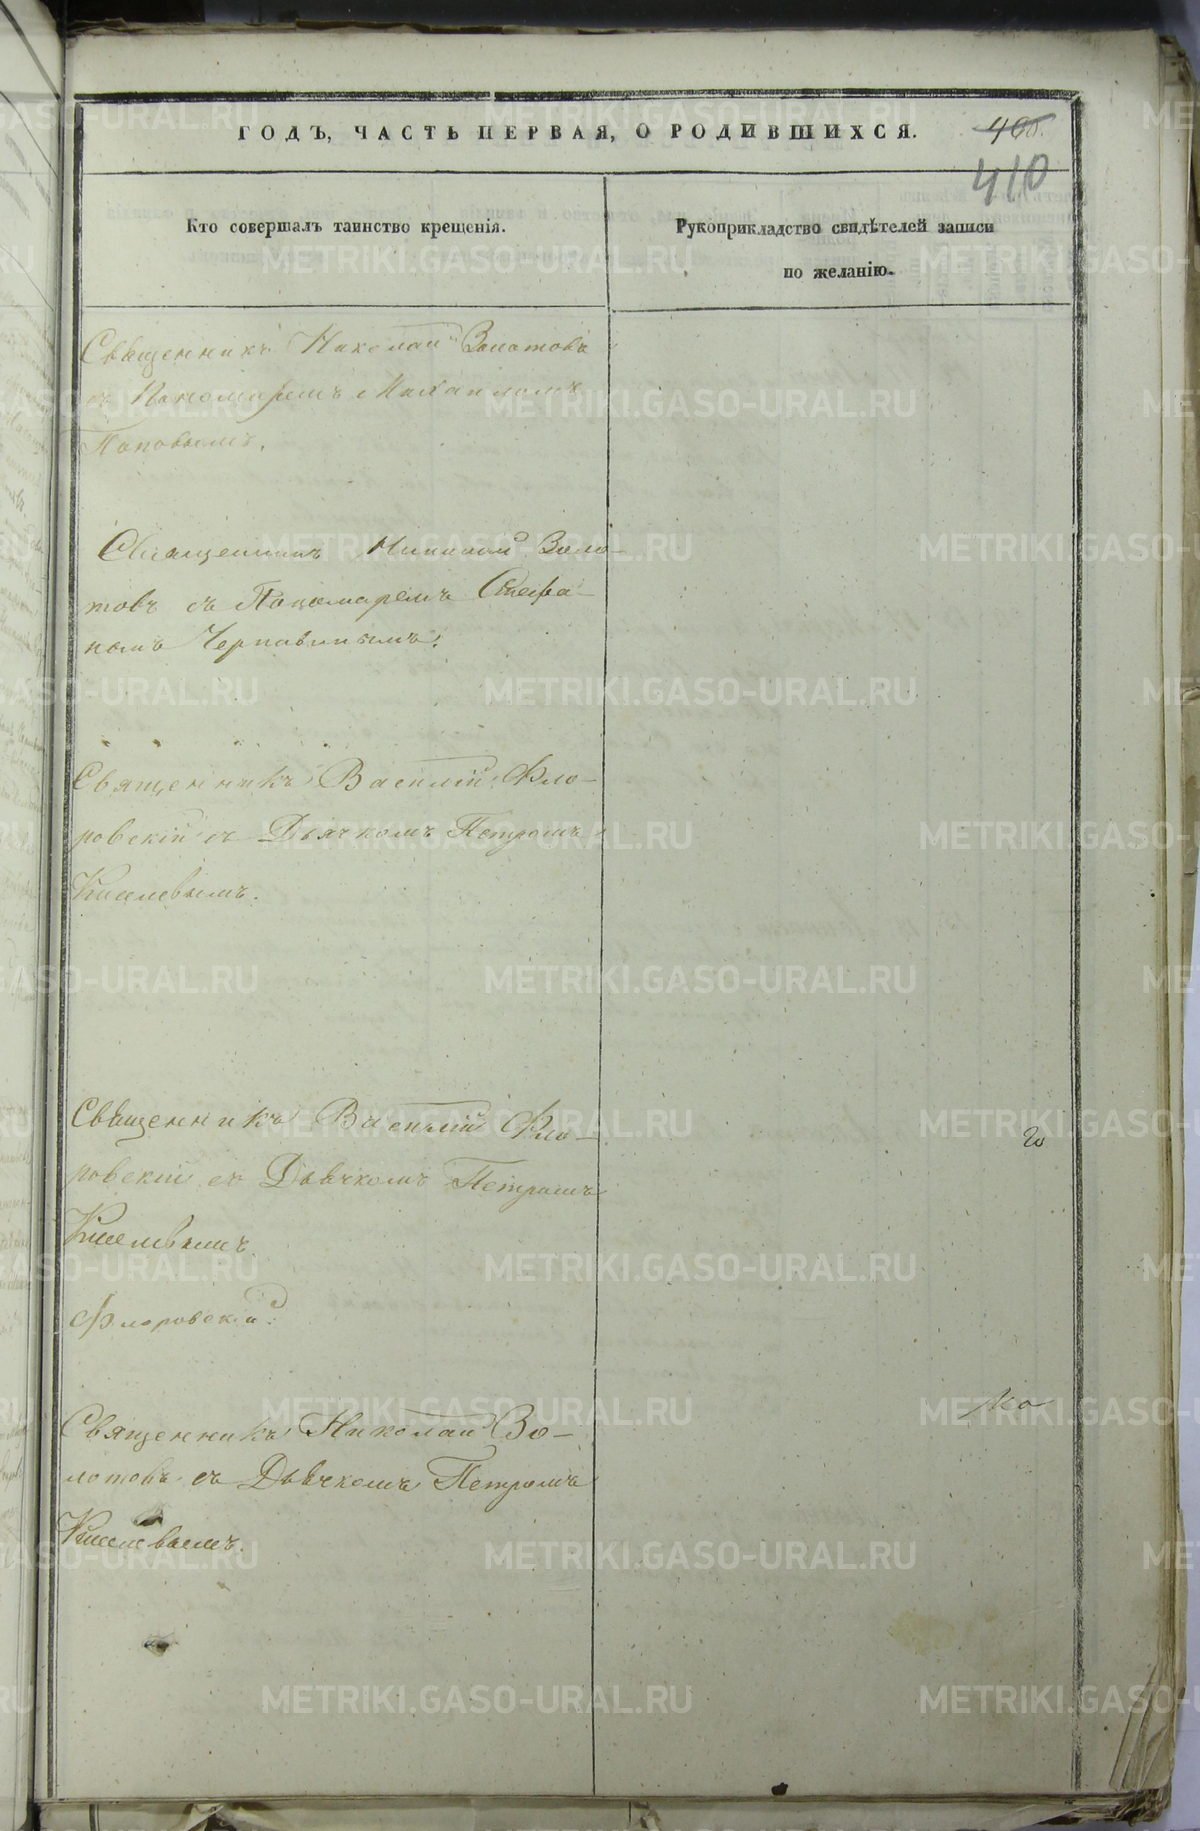 ГОДЪ, ЧАСТЬ ПЕРВАЯ, О РОДИВШИХСЯ.
410
Кто совершалъ таинство крещенія.
Рукоприкладство свидѣтелей записи
по желанію.
Священникъ Николай Золотовъ
съ Пономаремъ Михаиломъ
Поповымъ.
Священникъ Николай Золо-
товъ съ Пономаремъ Стефа-
номъ Чернавинымъ.
Священникъ Василій Фло-
ровскій съ Дьячкомъ Петромъ
Киселевымъ.
Священникъ Василій Фло-
ровскій съ Дьячкомъ Петромъ
Киселевымъ.
Флоровскій.
Священникъ Николай Зо-
лотовъ съ Дьячкомъ Петромъ
Киселевымъ.
METRIKI.GASO-URAL.RU